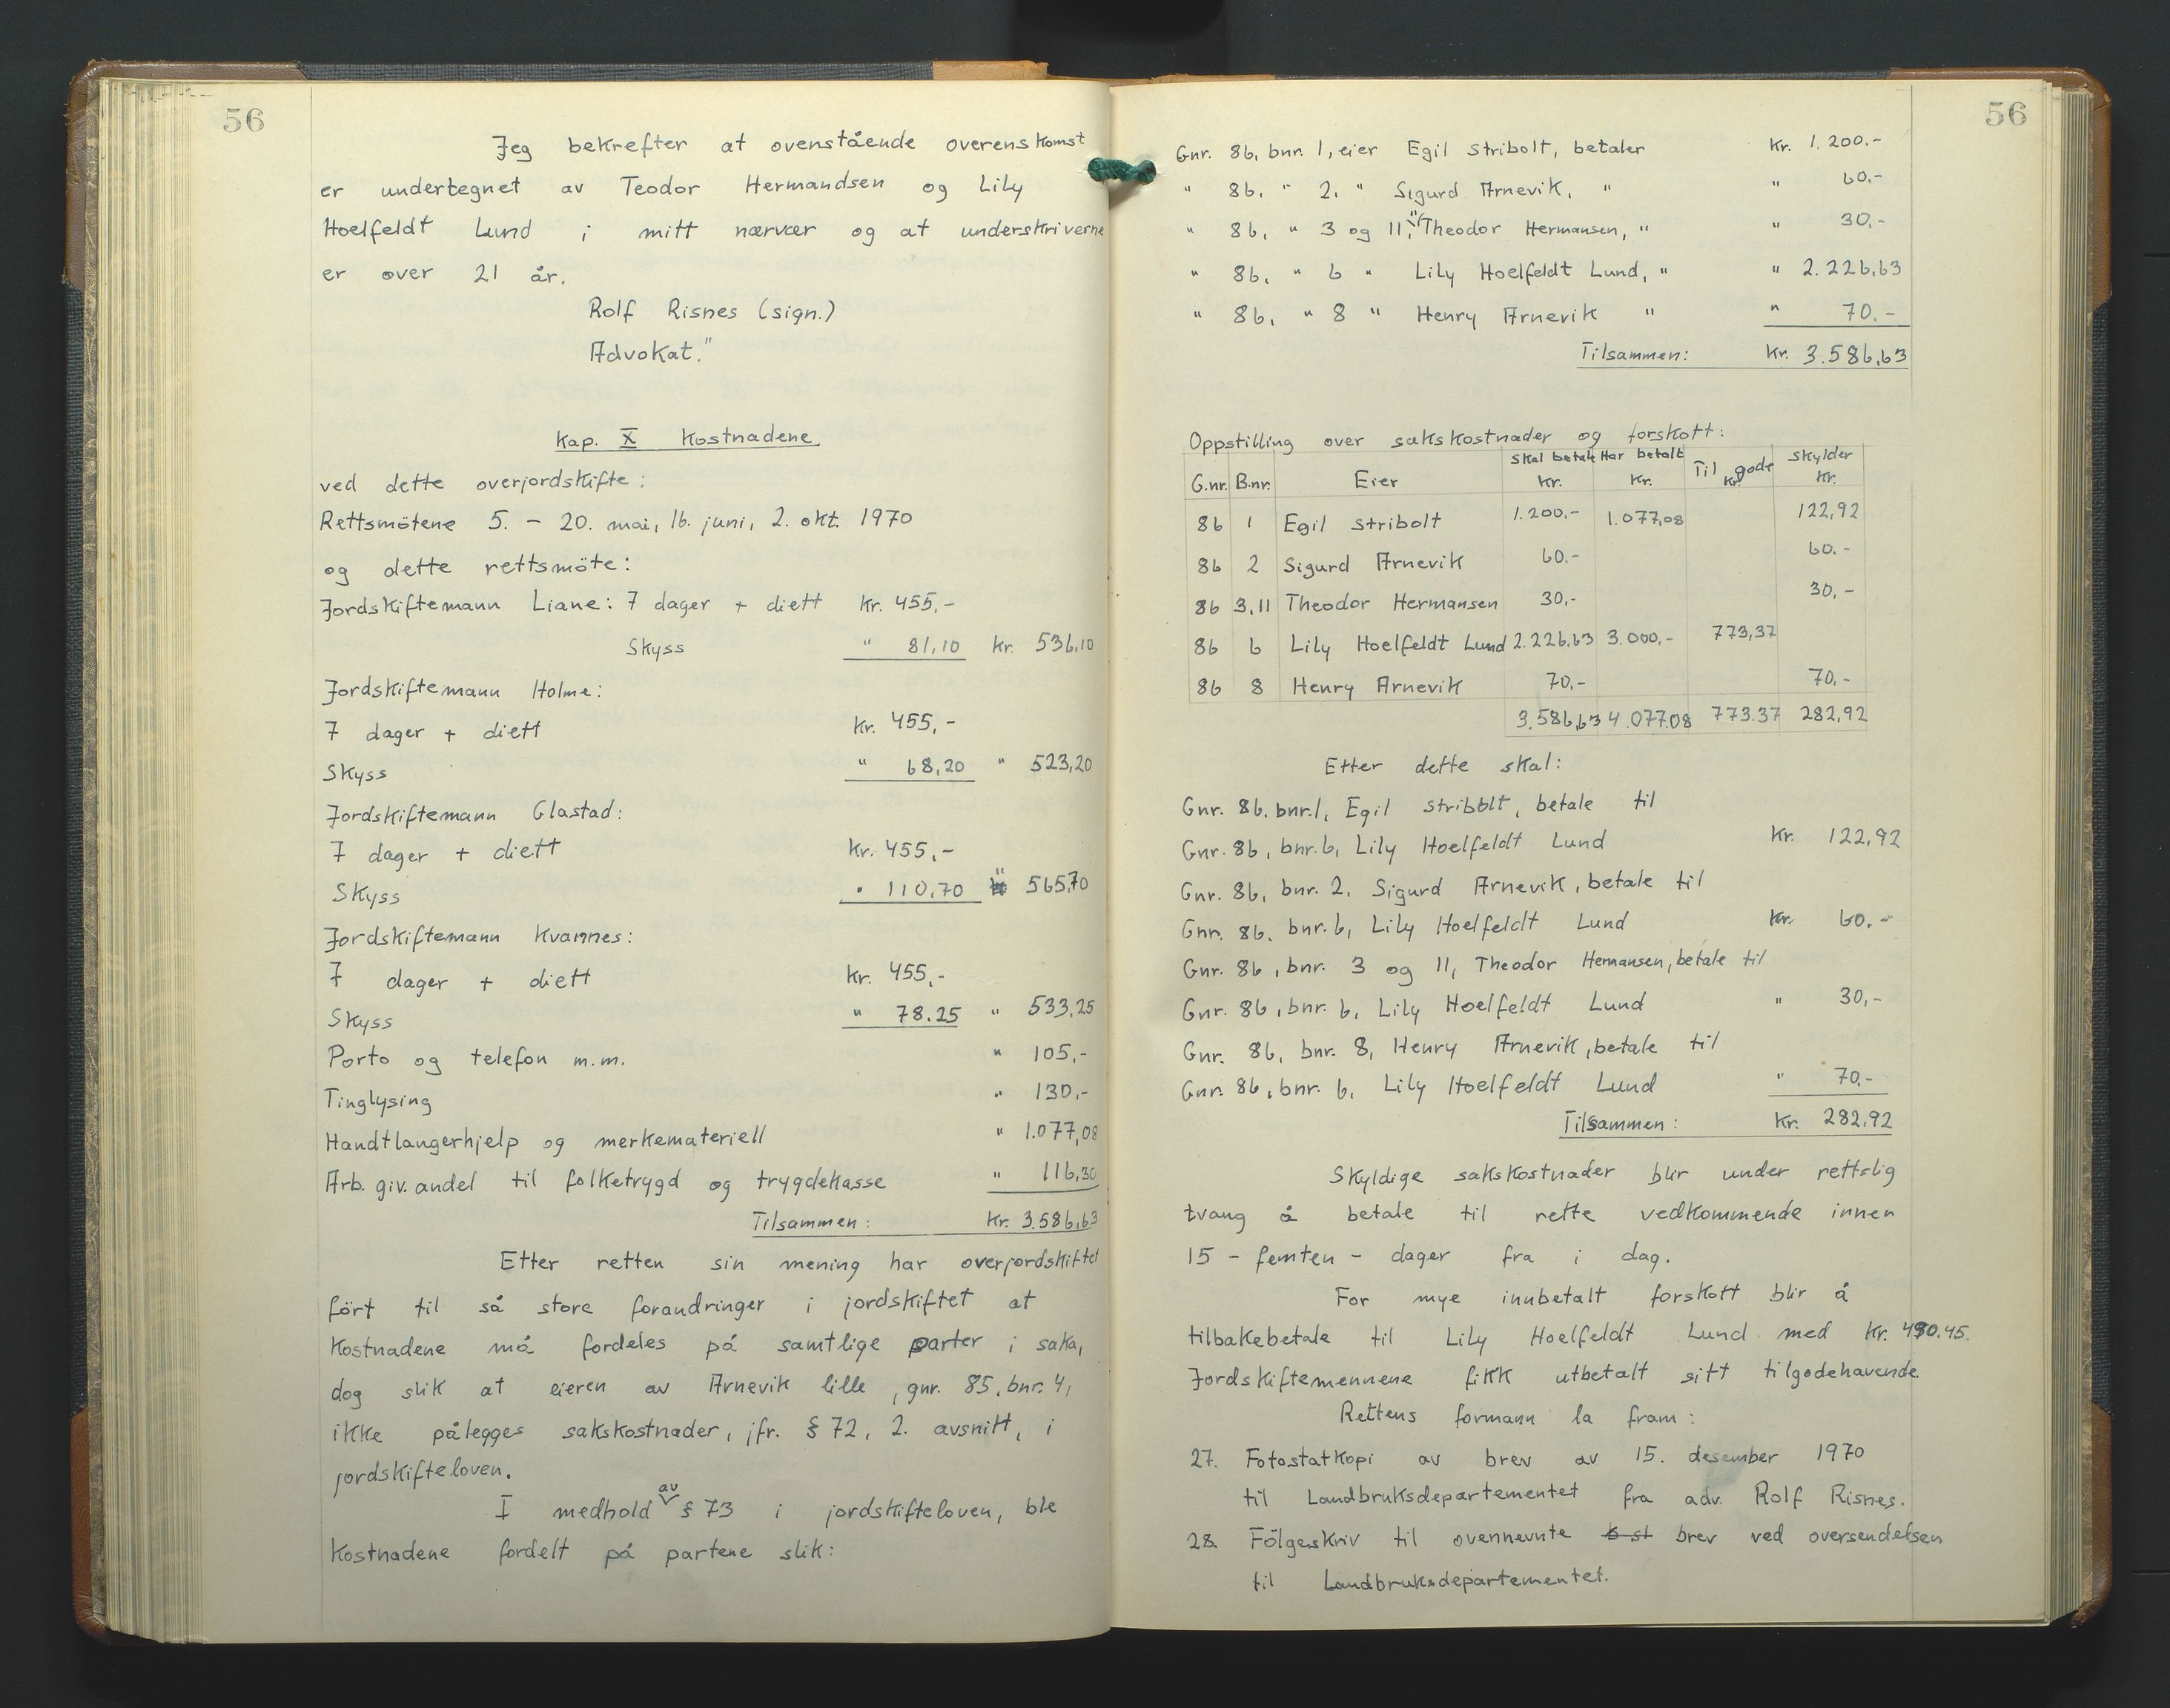 56
Jeg bekrefter at ovenstående overenskomst
er undertegnet av Teodor Hermandsen og Lily
Hoelfeldt Lund i mitt nærvær og at underskriverne
er over 21 år.
Rolf Risnes (sign.)
Advokat."
Kap. X Kostnadene
ved dette overjordskifte:
Rettsmötene 5. - 20. mai, 16. juni, 2. okt. 1970
og dette rettsmöte:
Jordskiftemann Liane: 7 dager + diett Kr. 455,-
Skyss " 81,10 Kr. 536,10
Jordskiftemann Holme:
7 dager + diett Kr. 455,-
Skyss " 68,20 " 523,20
Jordskiftemann Glastad:
7 dager + diett Kr. 455,-
Skyss " 110,70 " 565,70
Jordskiftemann Kvannes:
7 dager + diett Kr. 455,-
Skyss " 78.25 " 533,25
Porto og telefon m.m. " 105,-
Tinglysing " 130,-
Handtlangerhjelp og merkemateriell " 1.077,08
Arb. giv. andel til folketrygd og trygdekasse " 116,30
Tilsammen: Kr. 3.586,63
Etter retten sin mening har overjordskiftet
fört til så store forandringer i jordskiftet at
Kostnadene må fordeles på samtlige parter i saka,
dog slik at eieren av Arnevik lille, gnr. 85, bnr. 4,
ikke pålegges sakskostnader, jfr. § 72, 2. avsnitt, i
jordskifteloven.
I medhold av § 73 i jordskifteloven, ble
Kostnadene fordelt på partene slik:
56
Gnr. 86, bnr. 1, eier Egil Stribolt, betaler Kr. 1.200.-
" 86, " 2, " Sigurd Arnevik, " " 60,-
" 86, " 3 og 11, " Theodor Hermansen, " " 30,-
" 86, " 6 " Lily Hoelfeldt Lund, " " 2.226,63
" 86, " 8 " Henry Arnevik " " 70.-
Tilsammen: Kr. 3.586,63
Oppstilling over sakskostnader og forskott:
G.nr. B.nr. Eier Skal betale Kr. Har betalt Kr. Til gode Kr. Skylder Kr.
86 1 Egil Stribolt 1.200.- 1.077,08 122,92
86 2 Sigurd Arnevik 60.- 60.-
86 3,11 Theodor Hermansen 30,- 30,-
86 6 Lily Hoelfeldt Lund 2.226,63 3.000,- 773,37
86 8 Henry Arnevik 70,- 70,-
3.586,63 4.077.08 773.37 282,92
Etter dette skal:
Gnr. 86. bnr.1, Egil Stribolt, betale til
Gnr. 86, bnr. 6, Lily Hoelfeldt Lund Kr. 122,92
Gnr. 86, bnr. 2, Sigurd Arnevik, betale til
Gnr. 86. bnr. 6, Lily Hoelfeldt Lund Kr. 60.-
Gnr. 86, bnr. 3 og 11, Theodor Hermansen, betale til
Gnr. 86, bnr. 6, Lily Hoelfeldt Lund " 30,-
Gnr. 86, bnr. 8, Henry Arnevik, betale til
Gnr. 86, bnr. 6, Lily Hoelfeldt Lund " 70.-
Tilsammen: Kr. 282,92
Skyldige sakskostnader blir under rettslig
tvang å betale til rette vedkommende innen
15 - femten - dager fra i dag.
For mye innbetalt forskott blir å
tilbakebetale til Lily Hoelfeldt Lund med Kr. 490.45.
Jordskiftemennene fikk utbetalt sitt tilgodehavende.
Rettens formann la fram:
27. Fotostatkopi av brev av 15. desember 1970
til Landbruksdepartementet fra adv. Rolf Risnes.
28. Fölgeskriv til ovennevnte brev ved oversendelsen
til Landbruksdepartementet.